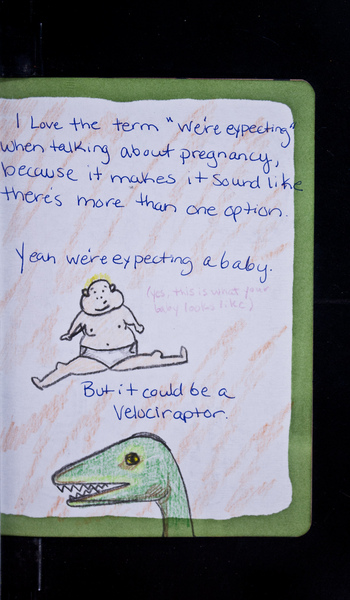 I Love the term "We're expecting"
when talking about pregnancy,
because it makes it sound like
there's more than one option.
Yeah we're expecting a baby.
(yes, this is what your
baby looks like)
But it could be a
Velociraptor.